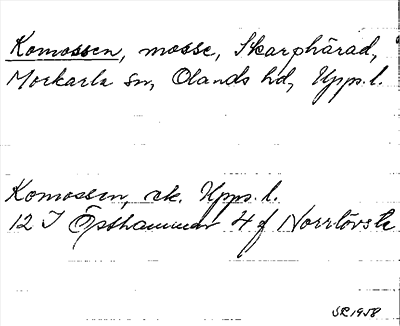 Komossen, mosse, Skarphärad,
Morkarla sn, Olands hd, Upps. l.
Komossen, ek. Upps. l.
12 I Östhammar 4 f Norrlövsta
SR 1958